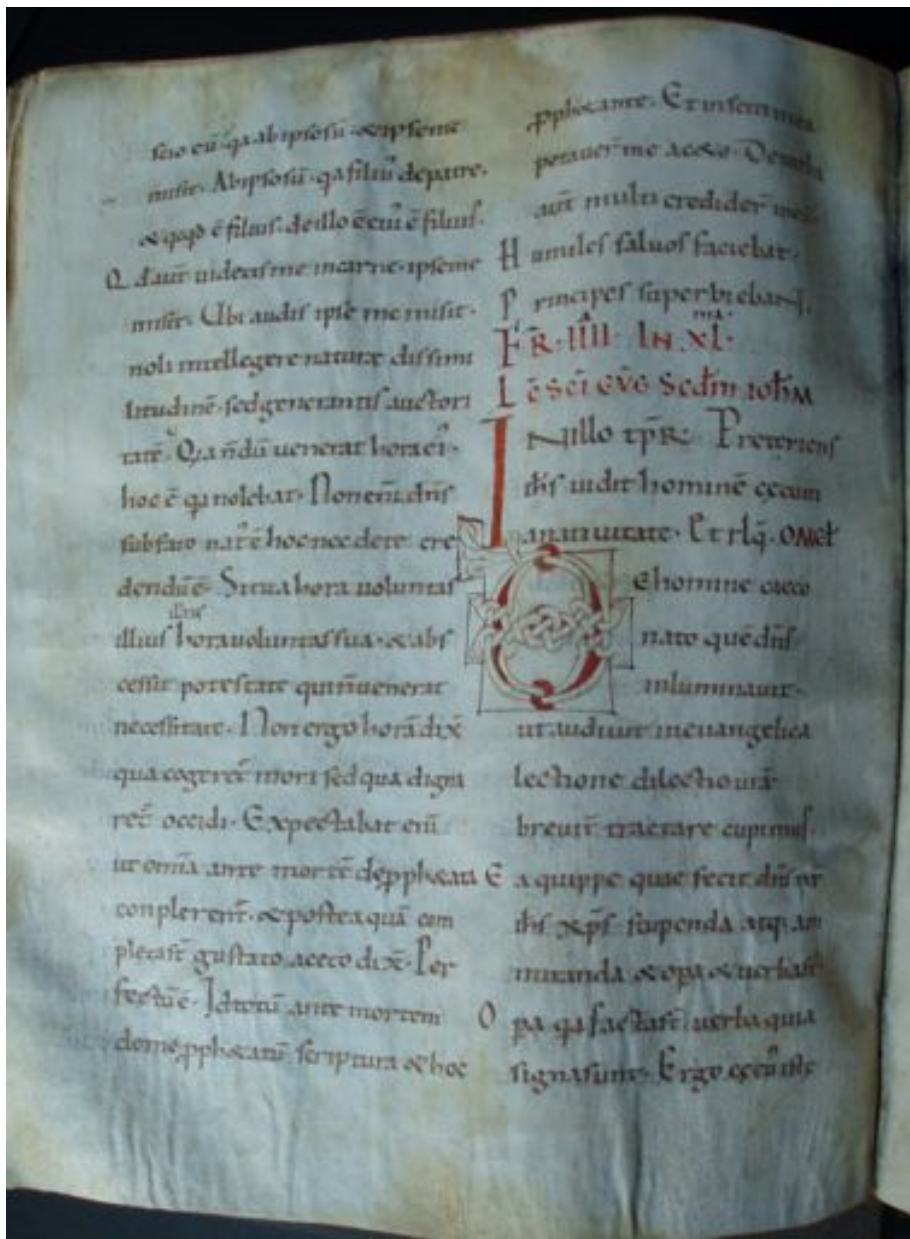 scio eū · q̄a ab ipso sū · & ipse me
misit · Ab ipso sū · q̄a filius de patre ·
& q̄cq̄d ē filius · de illo ē cui' ē filius ·
Q d aūt uidetis me in carne · ipse me
misit · Ubi audis ipse me misit ·
noli intellegere naturæ dissimi
litudinē · sed generantis auctori
tatē · Quia ñdū uenerat hora ei' ·
hoc ē q̄a nolebat · Non enī dn̄s
sub fato nat' ē hoc nec de te cre
dendū ē · Si tua hora uoluntas
illius
illius hora uoluntas sua · & abs
cessit potestate qui ñ uenerat
necessitate · Non ergo horā dix̄
qua coger&̄ mori sed qua digna
r&̄ occidi · Expectabat enī
ut om̄ia ante mortē de p̱ph&ata
conplerent̄ · & posteaquā com
pleta st̄ gustato aceto dix̄ · Per
fectū ē · Id totū ante mortem
dom̄ p̱ph&atū scriptura & hoc
p̱ph&ante · Et in siti mea
potauer̄ me aceto · De turba
aūt multi credider̄ in eū ·
H umiles saluos faciebat ·
P rincipes superbiebant ·
FR̄ · IIII · IN XL
ma
L ē SC̄I EV̄G Sc̄dm ioh̄m
I N illo tp̄R · Preteriens
ih̄s uidit hominē cęcum
a natiuitate · Et rlq̄ · OMel
D E homine caeco
nato quē dn̄s
inluminauit ·
ut audiuit in euangelica
lectione dilectio ur̄a
breuit̄ tractare cupimus ·
E a quippe quae fecit dn̄s nr̄
ih̄s xp̄s stupenda atq; am
miranda & op̱a & uerba st̄
O p̱a q̄a facta st̄ · uerba quia
signa sunt · Ergo cęcu' iste